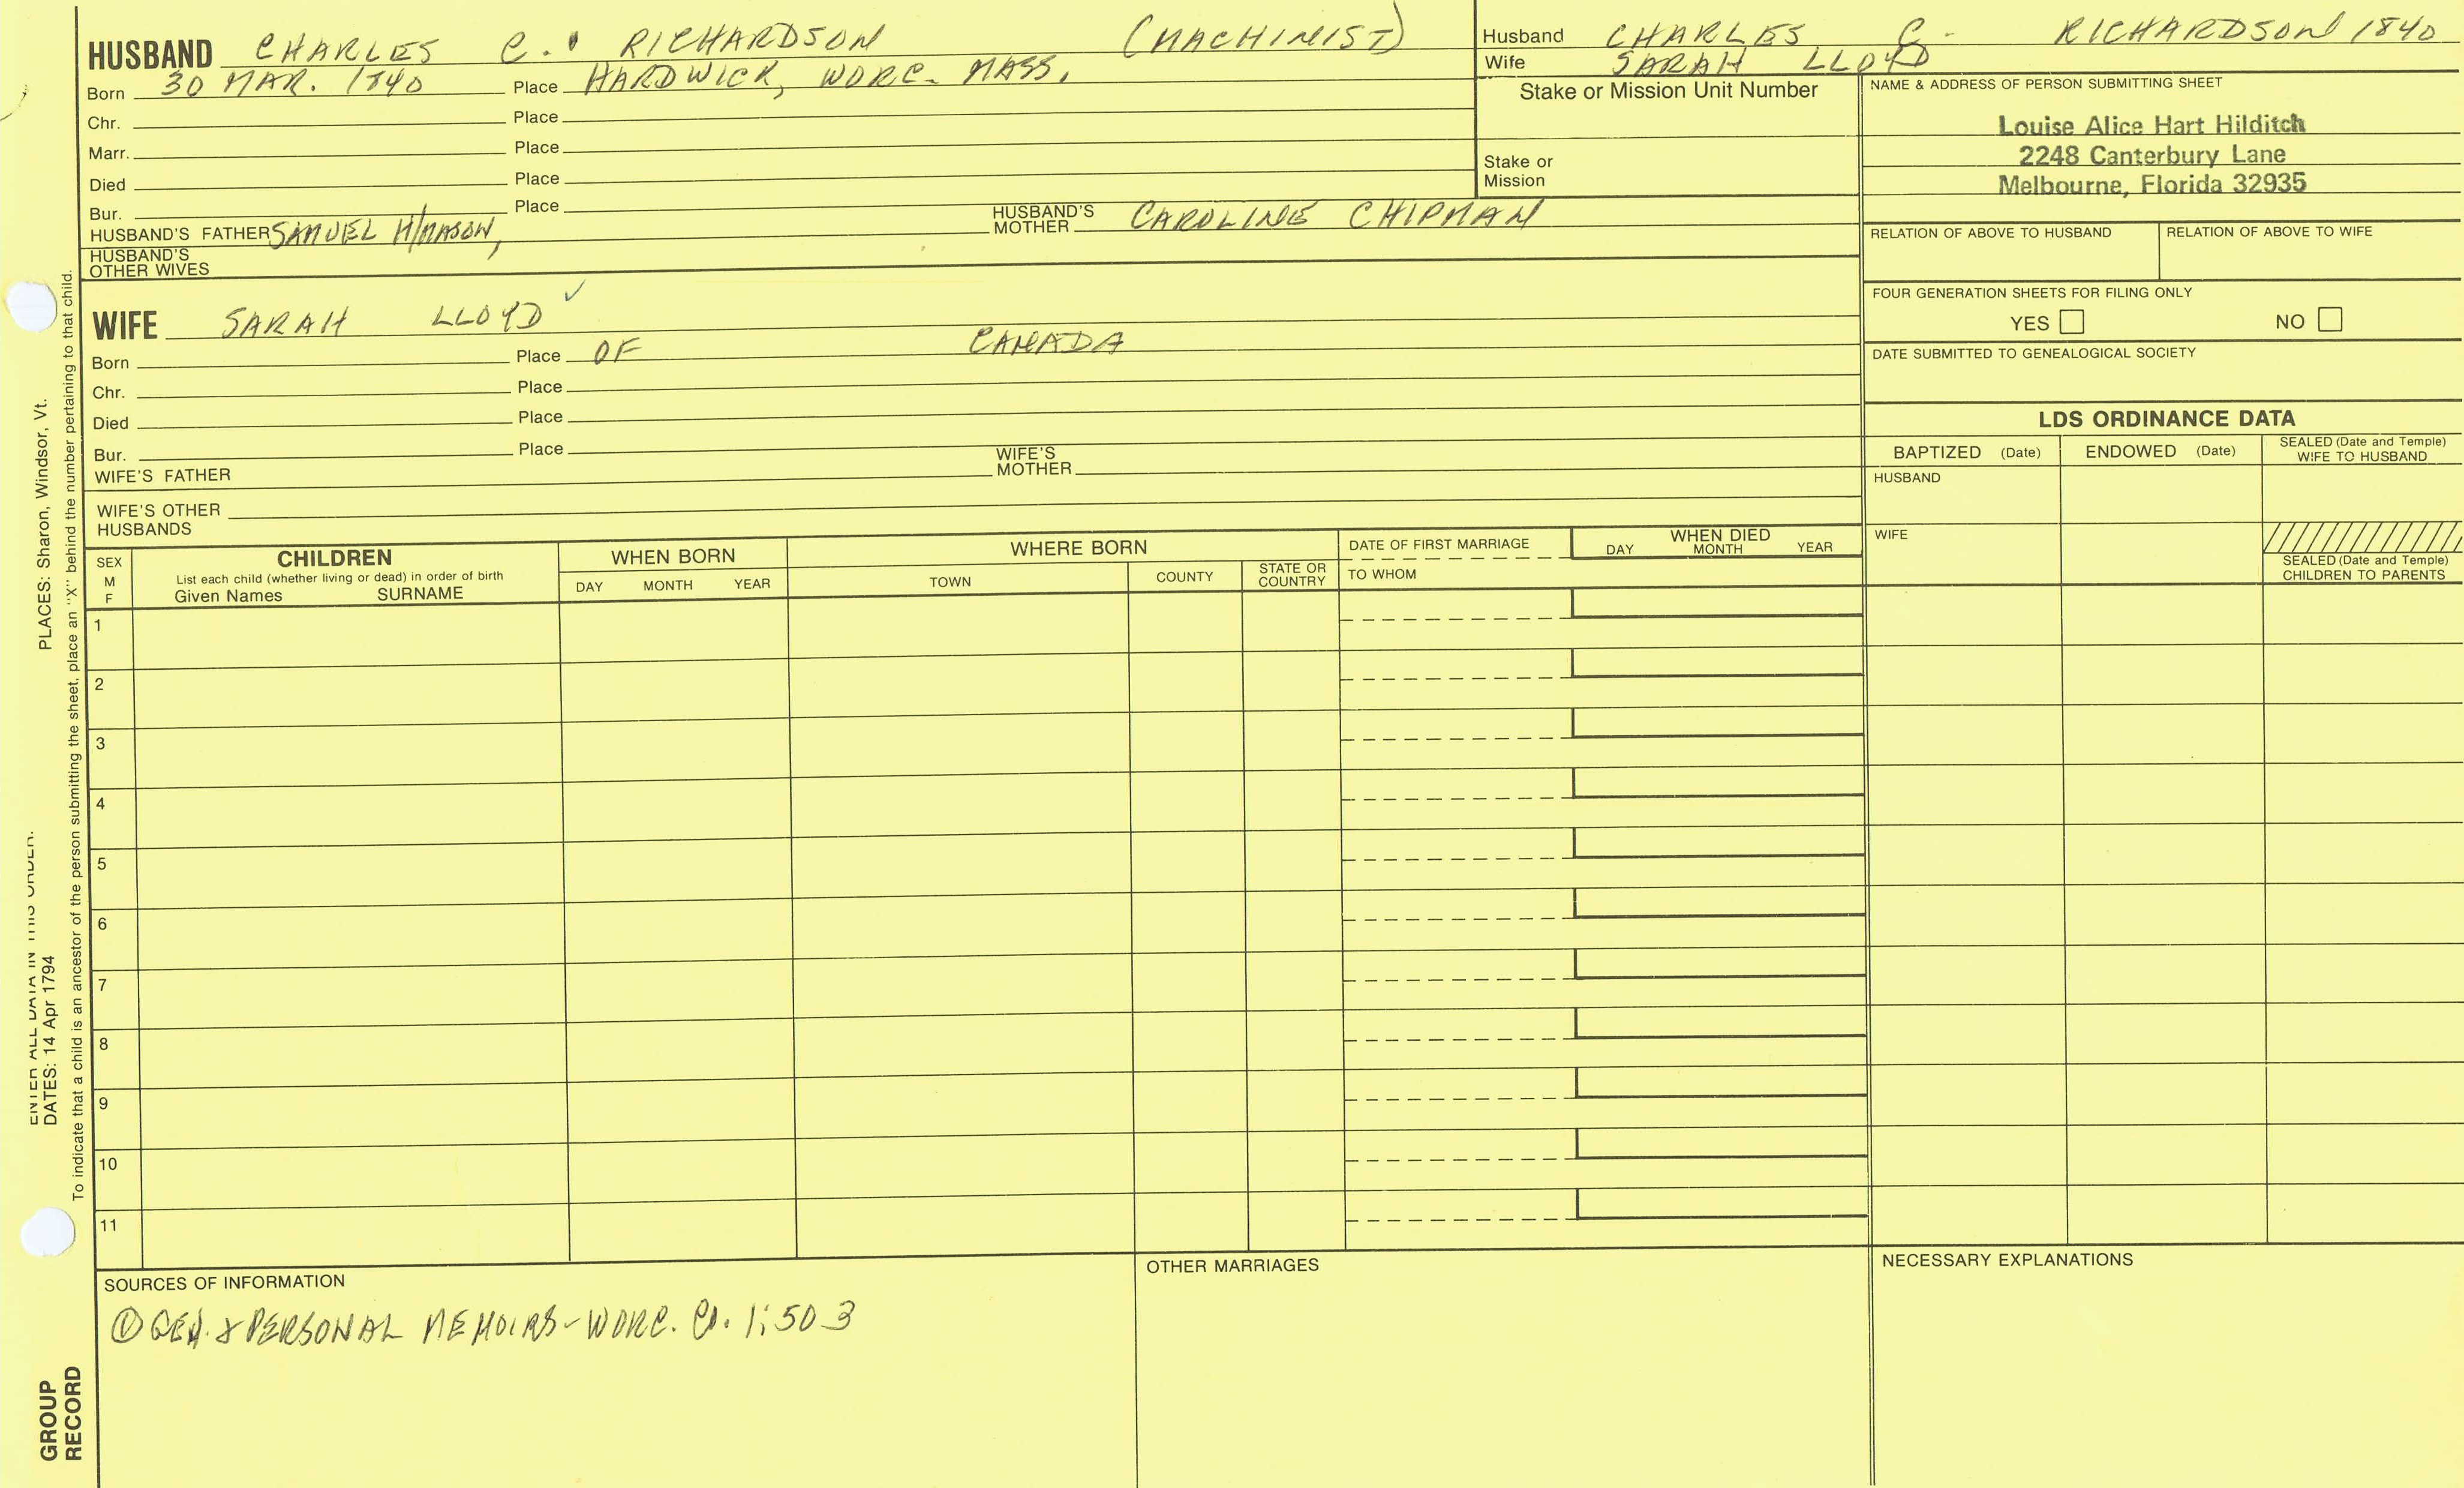 HUSBAND CHARLES C. RICHARDSON (MACHINIST)
Born 30 MAR. 1840 Place HARDWICK, WORC. MASS.
Chr. Place
Marr. Place
Died Place
Bur. Place
HUSBAND'S FATHER SAMUEL H/MASON, HUSBAND'S MOTHER CAROLINE CHIPMAN
HUSBAND'S OTHER WIVES
WIFE SARAH LLOYD ✓
Born Place OF CANADA
Chr. Place
Died Place
Bur. Place
WIFE'S FATHER WIFE'S MOTHER
WIFE'S OTHER HUSBANDS
Husband CHARLES C. RICHARDSON 1840
Wife SARAH LLOYD
Stake or Mission Unit Number
Stake or Mission
NAME & ADDRESS OF PERSON SUBMITTING SHEET
Louise Alice Hart Hilditch
2248 Canterbury Lane
Melbourne, Florida 32935
RELATION OF ABOVE TO HUSBAND RELATION OF ABOVE TO WIFE
FOUR GENERATION SHEETS FOR FILING ONLY
YES NO
DATE SUBMITTED TO GENEALOGICAL SOCIETY
LDS ORDINANCE DATA
BAPTIZED (Date) ENDOWED (Date) SEALED (Date and Temple) WIFE TO HUSBAND
HUSBAND
WIFE
SEALED (Date and Temple) CHILDREN TO PARENTS
SEX M F
CHILDREN
List each child (whether living or dead) in order of birth
Given Names SURNAME
WHEN BORN
DAY MONTH YEAR
WHERE BORN
TOWN COUNTY STATE OR COUNTRY
DATE OF FIRST MARRIAGE
TO WHOM
WHEN DIED
DAY MONTH YEAR
1
2
3
4
5
6
7
8
9
10
11
SOURCES OF INFORMATION
① GEN. & PERSONAL MEMOIRS - WORC. CO. 1:503
OTHER MARRIAGES
NECESSARY EXPLANATIONS
ENTER ALL DATA IN THIS ORDER:
DATES: 14 Apr 1794 PLACES: Sharon, Windsor, Vt.
To indicate that a child is an ancestor of the person submitting the sheet, place an "X" behind the number pertaining to that child.
GROUP RECORD